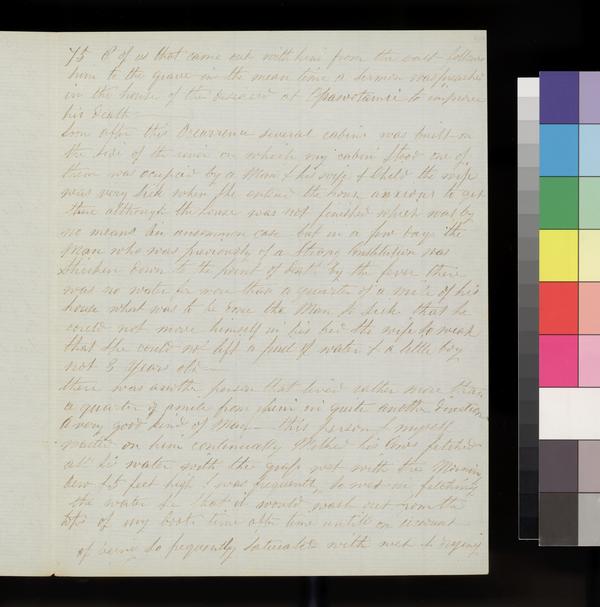 75 6 of us that came out with him from the east follow
him to the grave in the mean time a sermon was preached
in the house of the deceased at Opawotamie to improve
his death
Soon after this Occurrence several cabins was built on
the side of the river on which my cabin stood one of
them was ocupied by a Man & his wife & Child the wife
was very sick when she entered the house anxious to get
there although the house was not finished which was by
no means an uncommon case but in a few days the
Man who was previously of a Strong Constitution was
Stricken down to the point of death by the fever there
was no water for more than a quarter of a mile of his
house what was to be done the Man so sick that he
could not move himself in his bed the wife so weak
that she could not lift a pail of water & a little boy
not 3 years old —
there was another person that lived rather more than
a quarter of a mile from him in quite another direction
a very good kind of Man — this person & myself
waited on him continually Milked his Cows fetched
all his water with the grass wet with the Morning
dew six feet high I was frequently so wet in fetching
the water for that it would wash out from the
tops of my boots time after time untill on account
of being so frequently saturated with wet & drying